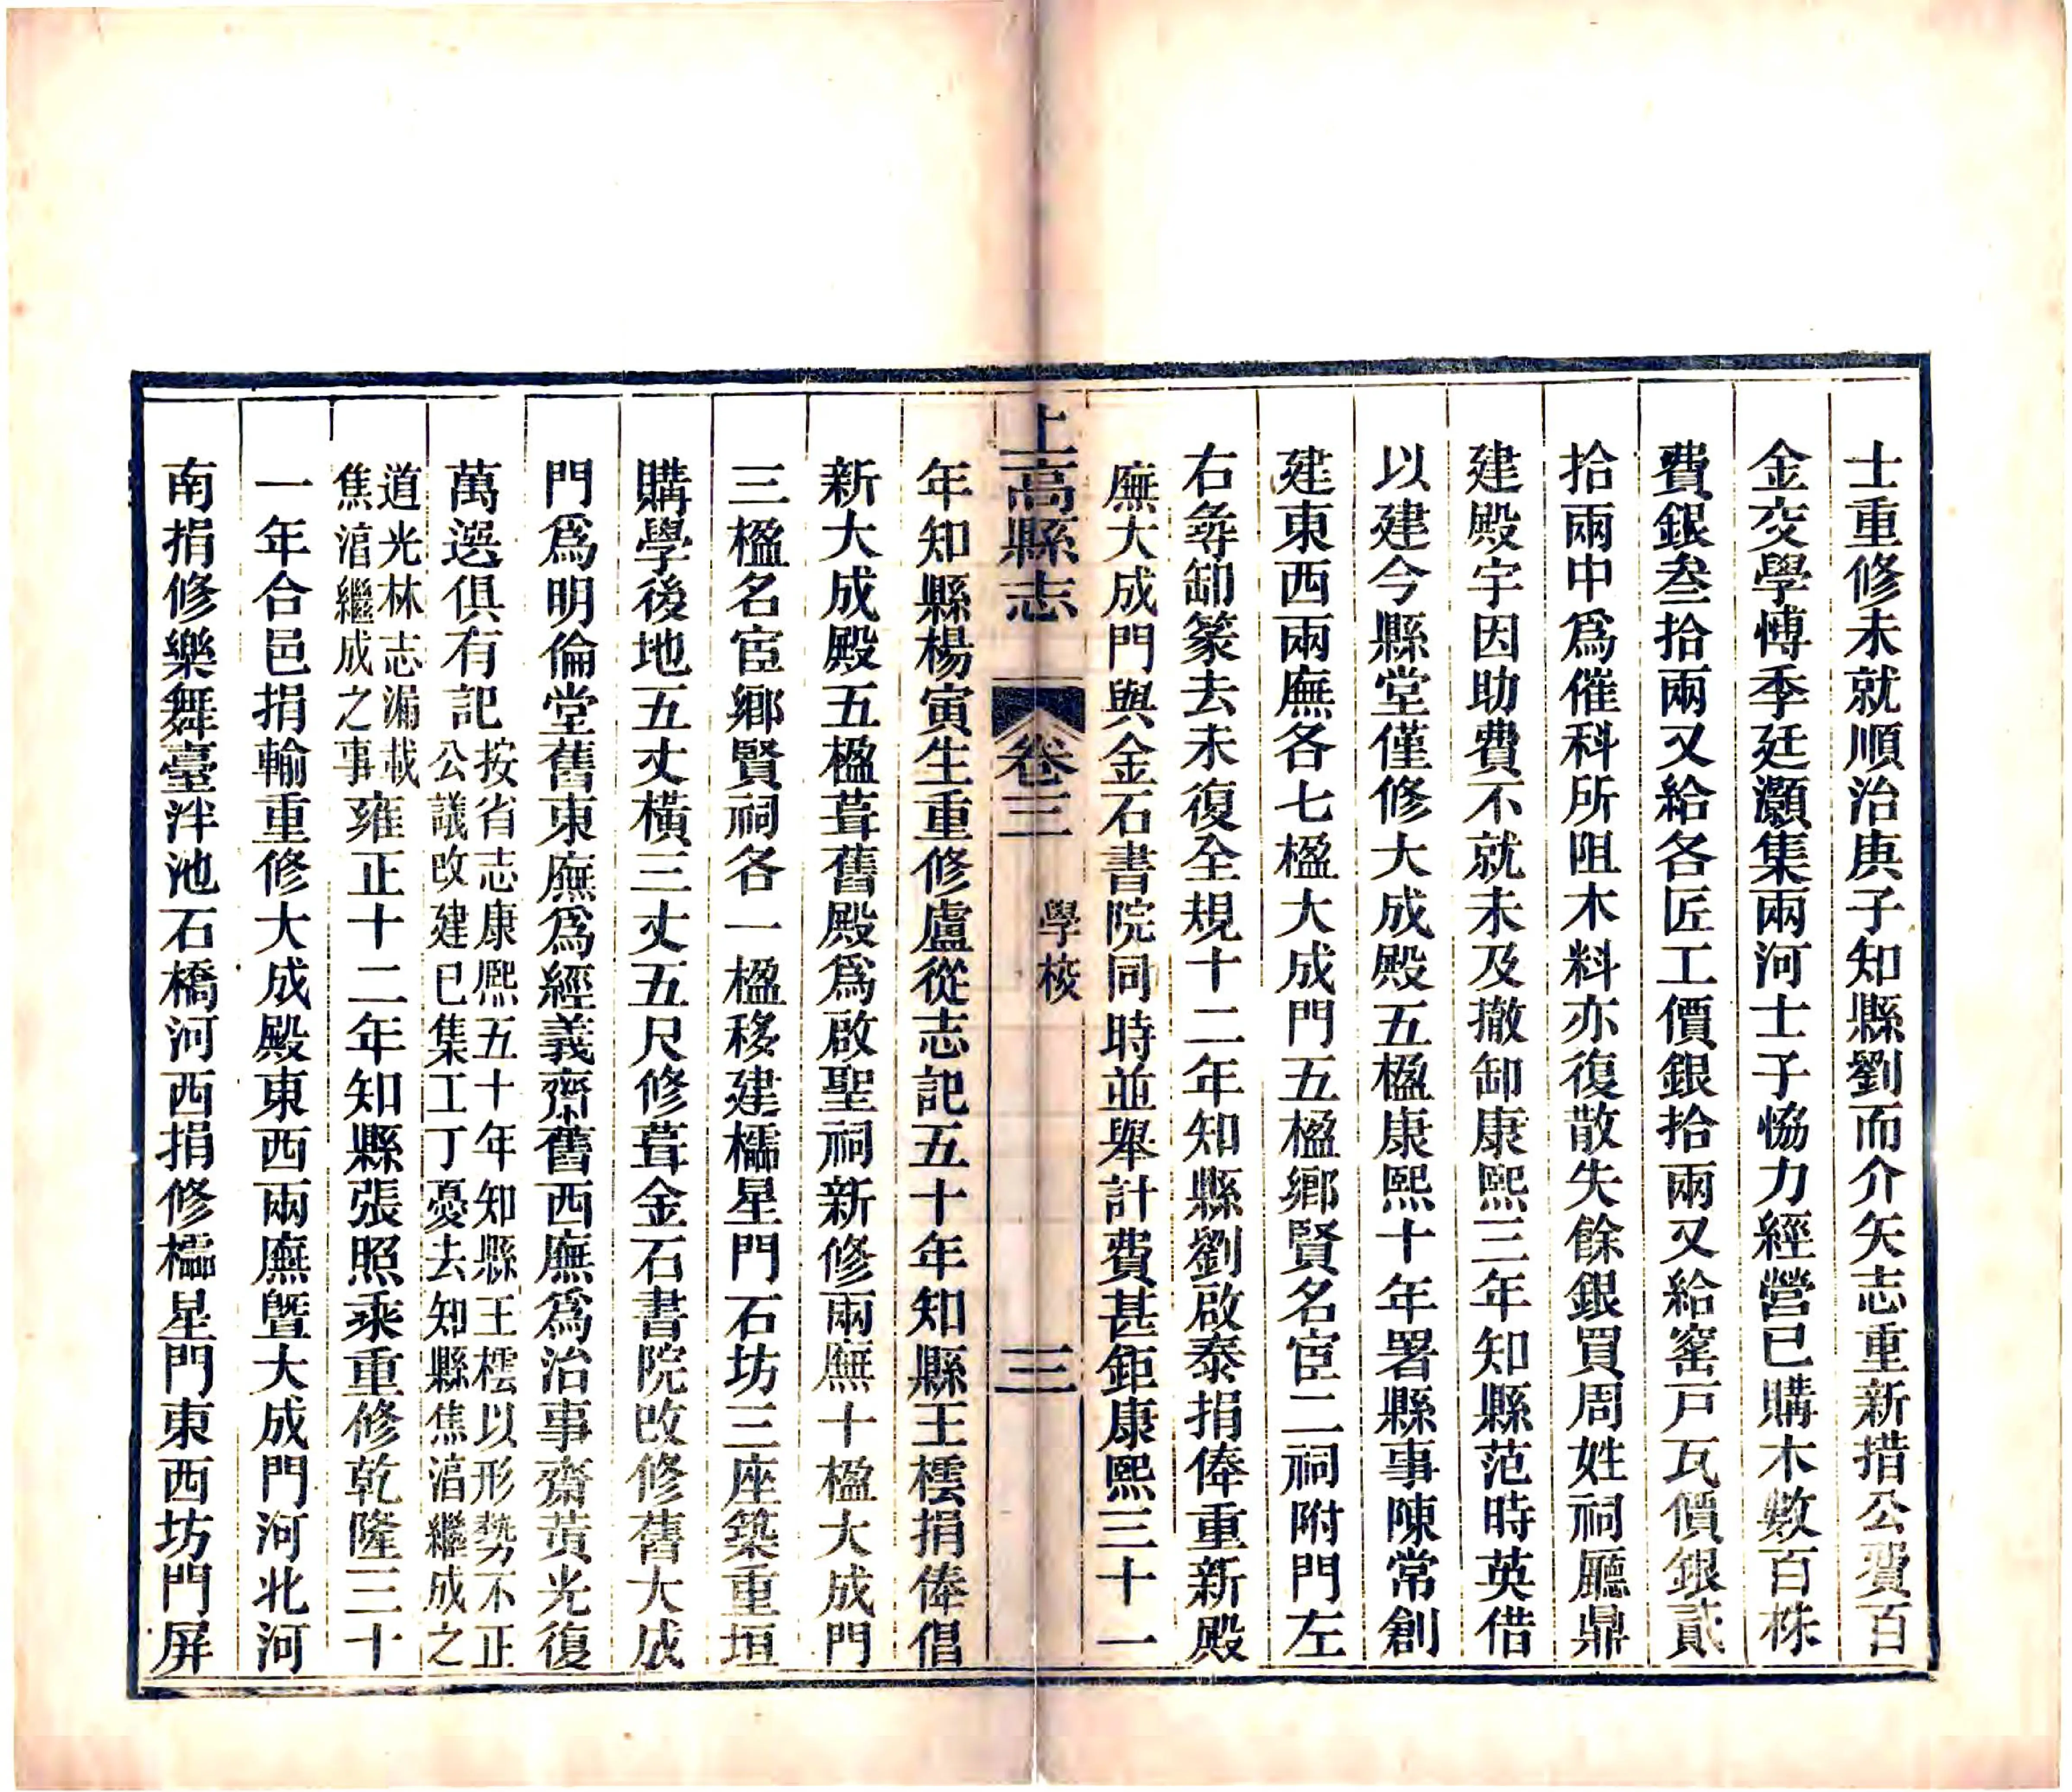 士重修未就順治庚子知縣劉而介矢志重新措公費百
金交學博季廷灝集兩河士子恊力經營已購木數百株
費銀叁拾兩又給各匠工價銀拾兩又給窰戸瓦價銀貳
拾兩中爲催科所阻木料亦復散失餘銀買周姓祠廳鼎
建殿宇因助費不就未及撤卸康熙三年知縣范時英借
以建今縣堂僅修大成殿五楹康熙十年署縣事陳常創
建東西兩廡各七楹大成門五楹鄉賢名宦二祠附門左
右尋卸篆去未復全規十二年知縣劉啟泰捐俸重新殿
廡大成門與金石書院同時並舉計費甚鉅康熙三十一
上高縣志 卷三 學校 三
年知縣楊寅生重修盧從志記五十年知縣王橒捐俸倡
新大成殿五楹葺舊殿爲啟聖祠新修兩廡十楹大成門
三楹名宦鄉賢祠各一楹移建櫺星門石坊三座築重垣
購學後地五丈橫三丈五尺修葺金石書院改修舊大成
門爲明倫堂舊東廡爲經義齋舊西廡爲治事齋黄光復
萬選俱有記
按省志康熙五十年知縣王橒以形勢不正
公議改建已集工丁憂去知縣焦湻繼成之
道光林志漏載
焦湻繼成之事
雍正十二年知縣張照乘重修乾隆三十
一年合邑捐輸重修大成殿東西兩廡曁大成門河北河
南捐修樂舞臺泮池石橋河西捐修櫺星門東西坊門屏